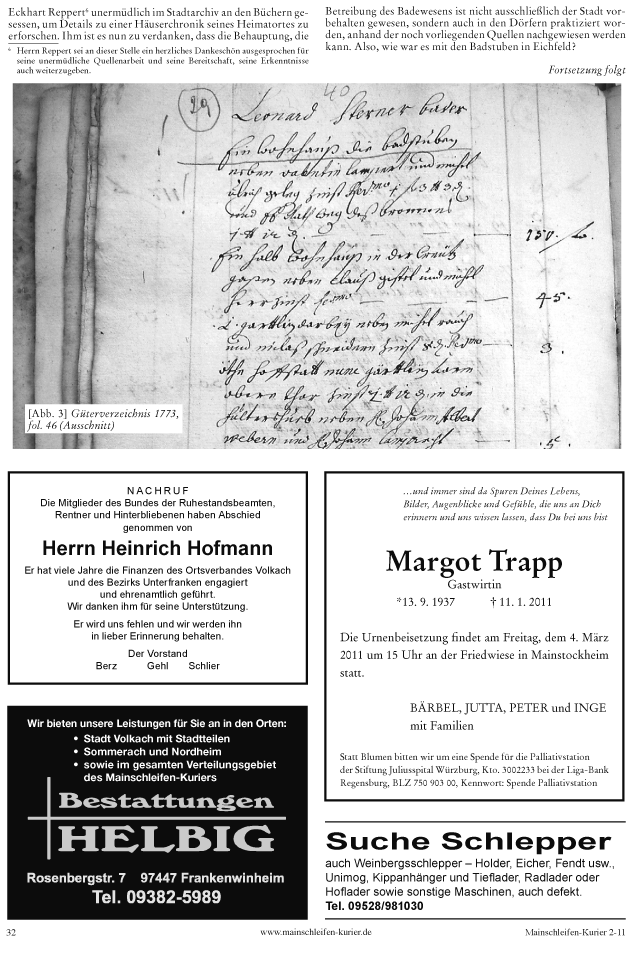 Eckhart Reppert⁶ unermüdlich im Stadtarchiv an den Büchern ge-
sessen, um Details zu einer Häuserchronik seines Heimatortes zu
erforschen. Ihm ist es nun zu verdanken, dass die Behauptung, die
⁶ Herrn Reppert sei an dieser Stelle ein herzliches Dankeschön ausgesprochen für
seine unermüdliche Quellenarbeit und seine Bereitschaft, seine Erkenntnisse
auch weiterzugeben.
Betreibung des Badewesens ist nicht ausschließlich der Stadt vor-
behalten gewesen, sondern auch in den Dörfern praktiziert wor-
den, anhand der noch vorliegenden Quellen nachgewiesen werden
kann. Also, wie war es mit den Badstuben in Eichfeld?
Fortsetzung folgt
40
29
Leonard Sterner bader
Ein wohnhauß die badstuben
neben valentin lampert und michel
150.
Ein halb wohnhauß in der
gaßen neben und michel
45.
3.
[Abb. 3] Güterverzeichnis 1773,
fol. 46 (Ausschnitt)
NACHRUF
Die Mitglieder des Bundes der Ruhestandsbeamten,
Rentner und Hinterbliebenen haben Abschied
genommen von
Herrn Heinrich Hofmann
Er hat viele Jahre die Finanzen des Ortsverbandes Volkach
und des Bezirks Unterfranken engagiert
und ehrenamtlich geführt.
Wir danken ihm für seine Unterstützung.
Er wird uns fehlen und wir werden ihn
in lieber Erinnerung behalten.
Der Vorstand
Berz Gehl Schlier
...und immer sind da Spuren Deines Lebens,
Bilder, Augenblicke und Gefühle, die uns an Dich
erinnern und uns wissen lassen, dass Du bei uns bist
Margot Trapp
Gastwirtin
*13. 9. 1937 † 11. 1. 2011
Die Urnenbeisetzung findet am Freitag, dem 4. März
2011 um 15 Uhr an der Friedwiese in Mainstockheim
statt.
BÄRBEL, JUTTA, PETER und INGE
mit Familien
Statt Blumen bitten wir um eine Spende für die Palliativstation
der Stiftung Juliusspital Würzburg, Kto. 3002233 bei der Liga-Bank
Regensburg, BLZ 750 903 00, Kennwort: Spende Palliativstation
Wir bieten unsere Leistungen für Sie an in den Orten:
• Stadt Volkach mit Stadtteilen
• Sommerach und Nordheim
• sowie im gesamten Verteilungsgebiet
des Mainschleifen-Kuriers
Bestattungen
HELBIG
Rosenbergstr. 7 97447 Frankenwinheim
Tel. 09382-5989
Suche Schlepper
auch Weinbergsschlepper – Holder, Eicher, Fendt usw.,
Unimog, Kippanhänger und Tieflader, Radlader oder
Hoflader sowie sonstige Maschinen, auch defekt.
Tel. 09528/981030
32
www.mainschleifen-kurier.de
Mainschleifen-Kurier 2-11